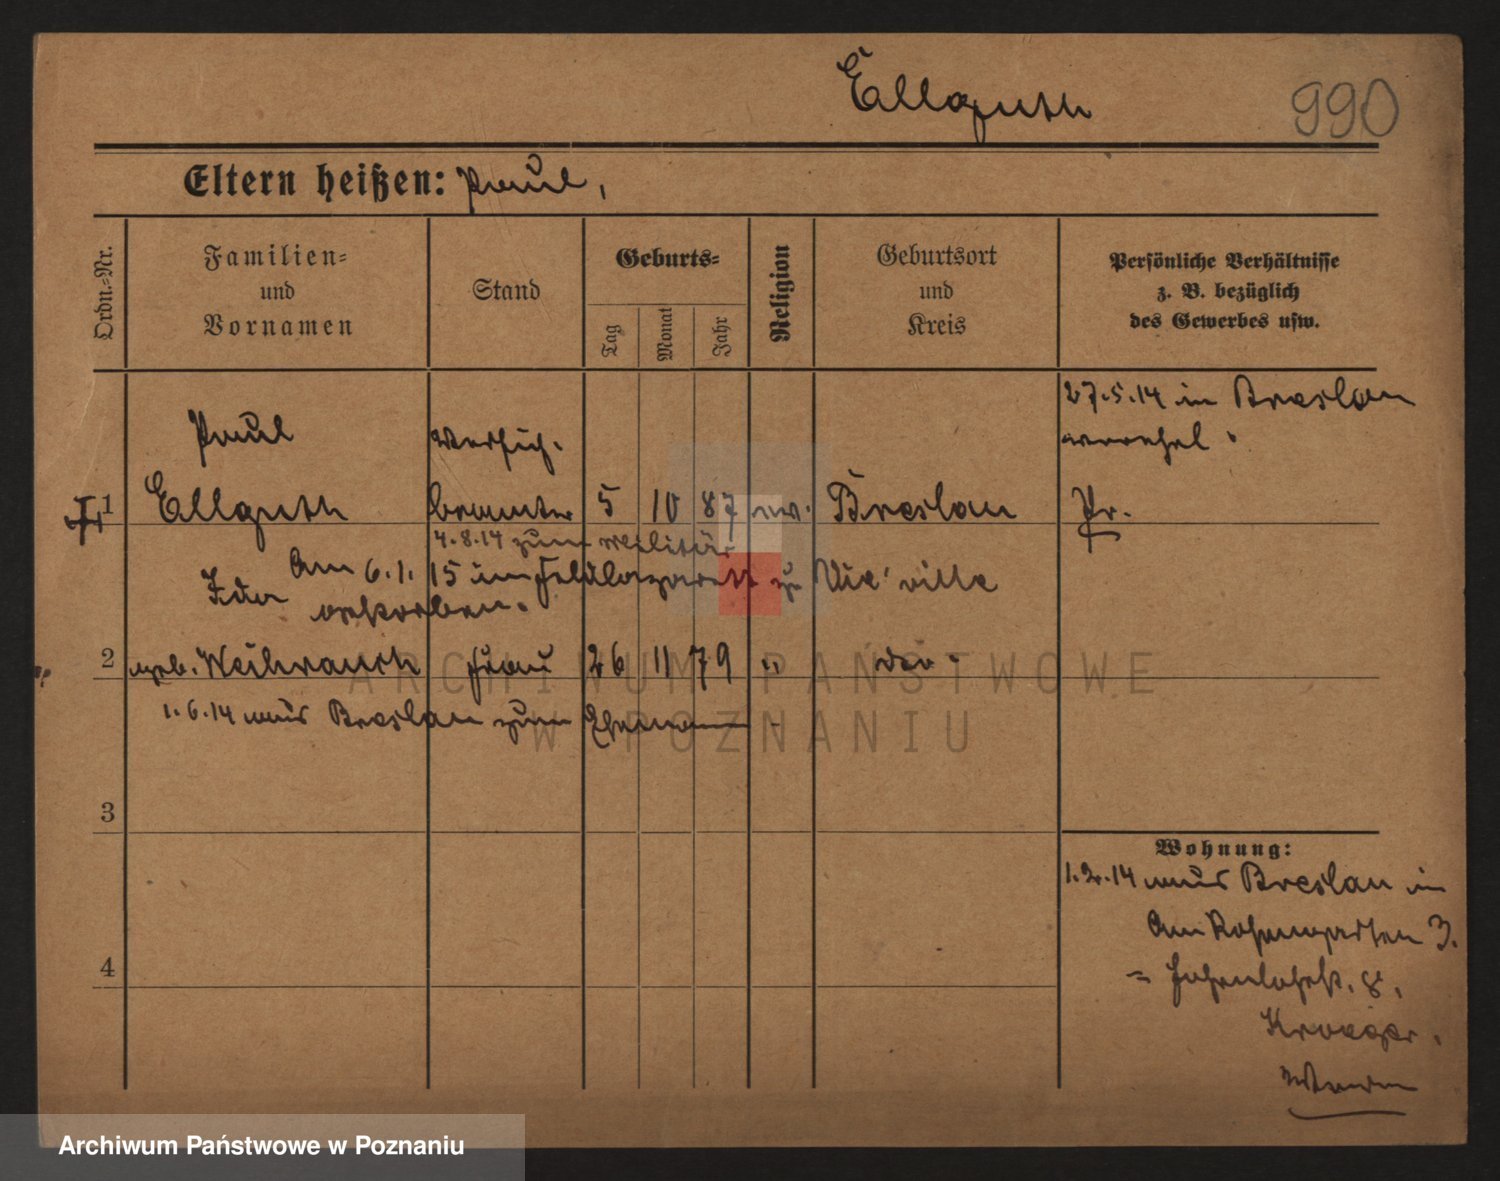 Ellguth
990
Eltern heißen: Paul,
Ordn.-Nr.
Familien-
und
Vornamen
Stand
Geburts-
Tag
Monat
Jahr
Religion
Geburtsort
und
Kreis
Persönliche Verhältnisse
z. B. bezüglich
des Gewerbes usw.
27.5.14 in Breslau
verehel.
Paul
Versich.
1 Ellguth beamter 5 10 87 ev. Breslau Pr.
4.8.14 zum Militär
Am 6.1.15 im Feldlazarett zu
Ida
verstorben.
2 geb. Weihrauch Frau 26 11 79 " do.
1.6.14 aus Breslau zum Ehemann
3
Wohnung:
1.2.14 aus Breslau in
Am Rosengarten 3.
4
= Hohenlohestr. 8,
Kroeger.
ARCHIWUM PAŃSTWOWE
W POZNANIU
Archiwum Państwowe w Poznaniu